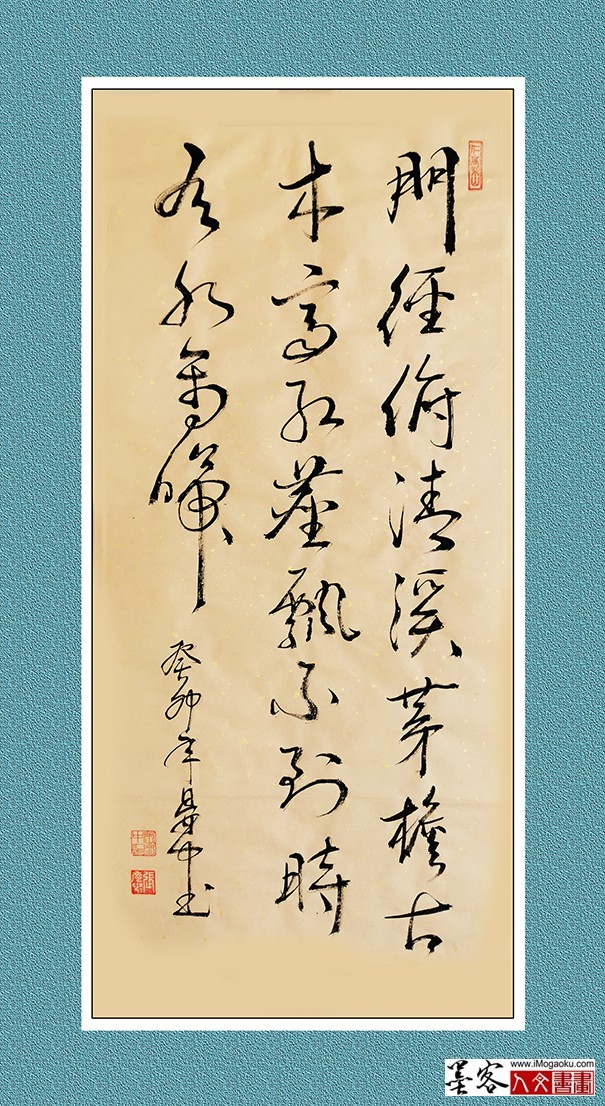 門徑俯清溪茅檐古
木齊紅塵飄不到時
有水禽啼
癸卯年 中书
墨客
www.iMogaoku.com
人文書畫